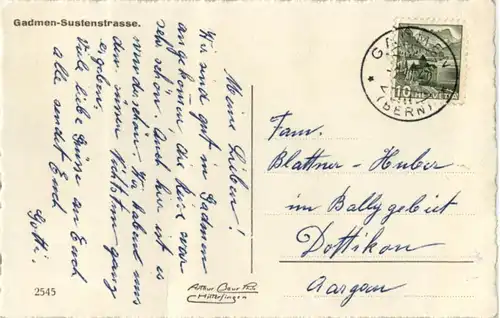 Gadmen-Sustenstrasse.
Meine Lieben!
Wir sind gut in Gadmen
angekommen, die Reise war
sehr schön. Auch hier ist es
wunderschön. Wir haben uns
dem süssen Nichtstun ganz
ergeben.
Viele liebe Grüsse an Euch
alle sendet Euch
Gotti.
GADMEN
(BERN)
HELVETIA
Fam.
Blattner-Huber
im Ballygebiet
Dottikon
Aargau
2545
Arthur Baur